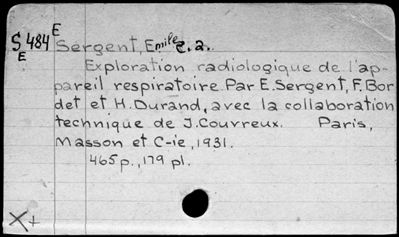 S 484 E
E
Sergent, Emile e. a.
Exploration radiologique de l'ap-
pareil respiratoire. Par E. Sergent, F. Bor
det et H. Durand, avec la collaboration
technique de J. Couvreux. Paris,
Masson et C-ie, 1931.
465 p., 179 pl.
X+